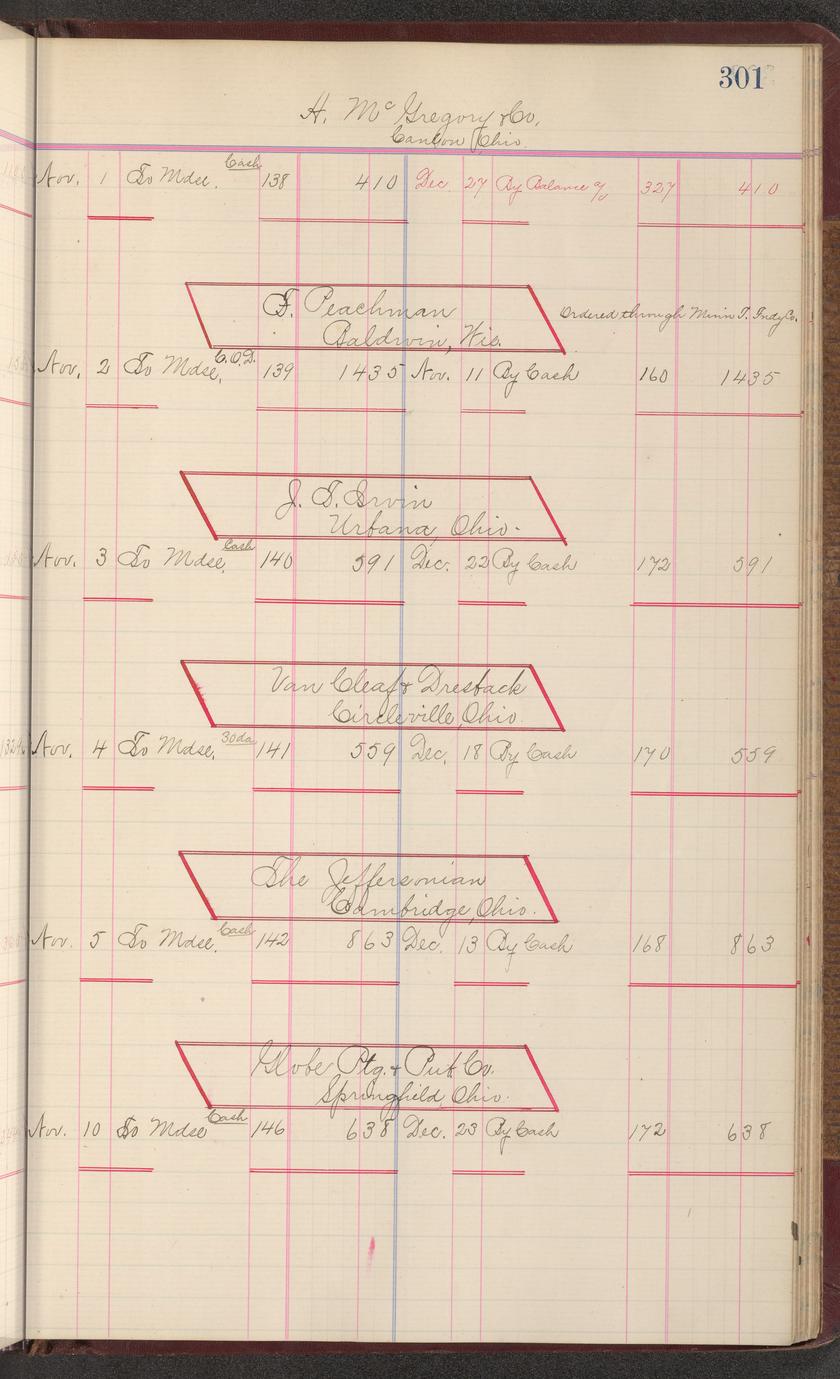 301
H. McGregory & Co.
Canton Ohio.
Nov. 1 To Mdse. Cash 138 410 Dec. 27 By Balance a/c 327 410
F. Peachman
Baldwin, Wis.
Ordered through Minn T. Fndy Co.
Nov. 2 To Mdse, C.O.D. 139 1435 Nov. 11 By Cash 160 1435
J. T. Irvin
Urbana, Ohio.
Nov. 3 To Mdse, Cash 140 591 Dec. 22 By Cash 172 591
Van Cleaf & Dresback
Circleville, Ohio.
Nov. 4 To Mdse, 30da 141 559 Dec, 18 By Cash 170 559
The Jeffersonian
Cambridge, Ohio.
Nov. 5 To Mdse. Cash 142 863 Dec. 13 By Cash 168 863
Globe Ptg. & Pub Co.
Springfield, Ohio.
Nov. 10 To Mdse Cash 146 638 Dec. 23 By Cash 172 638